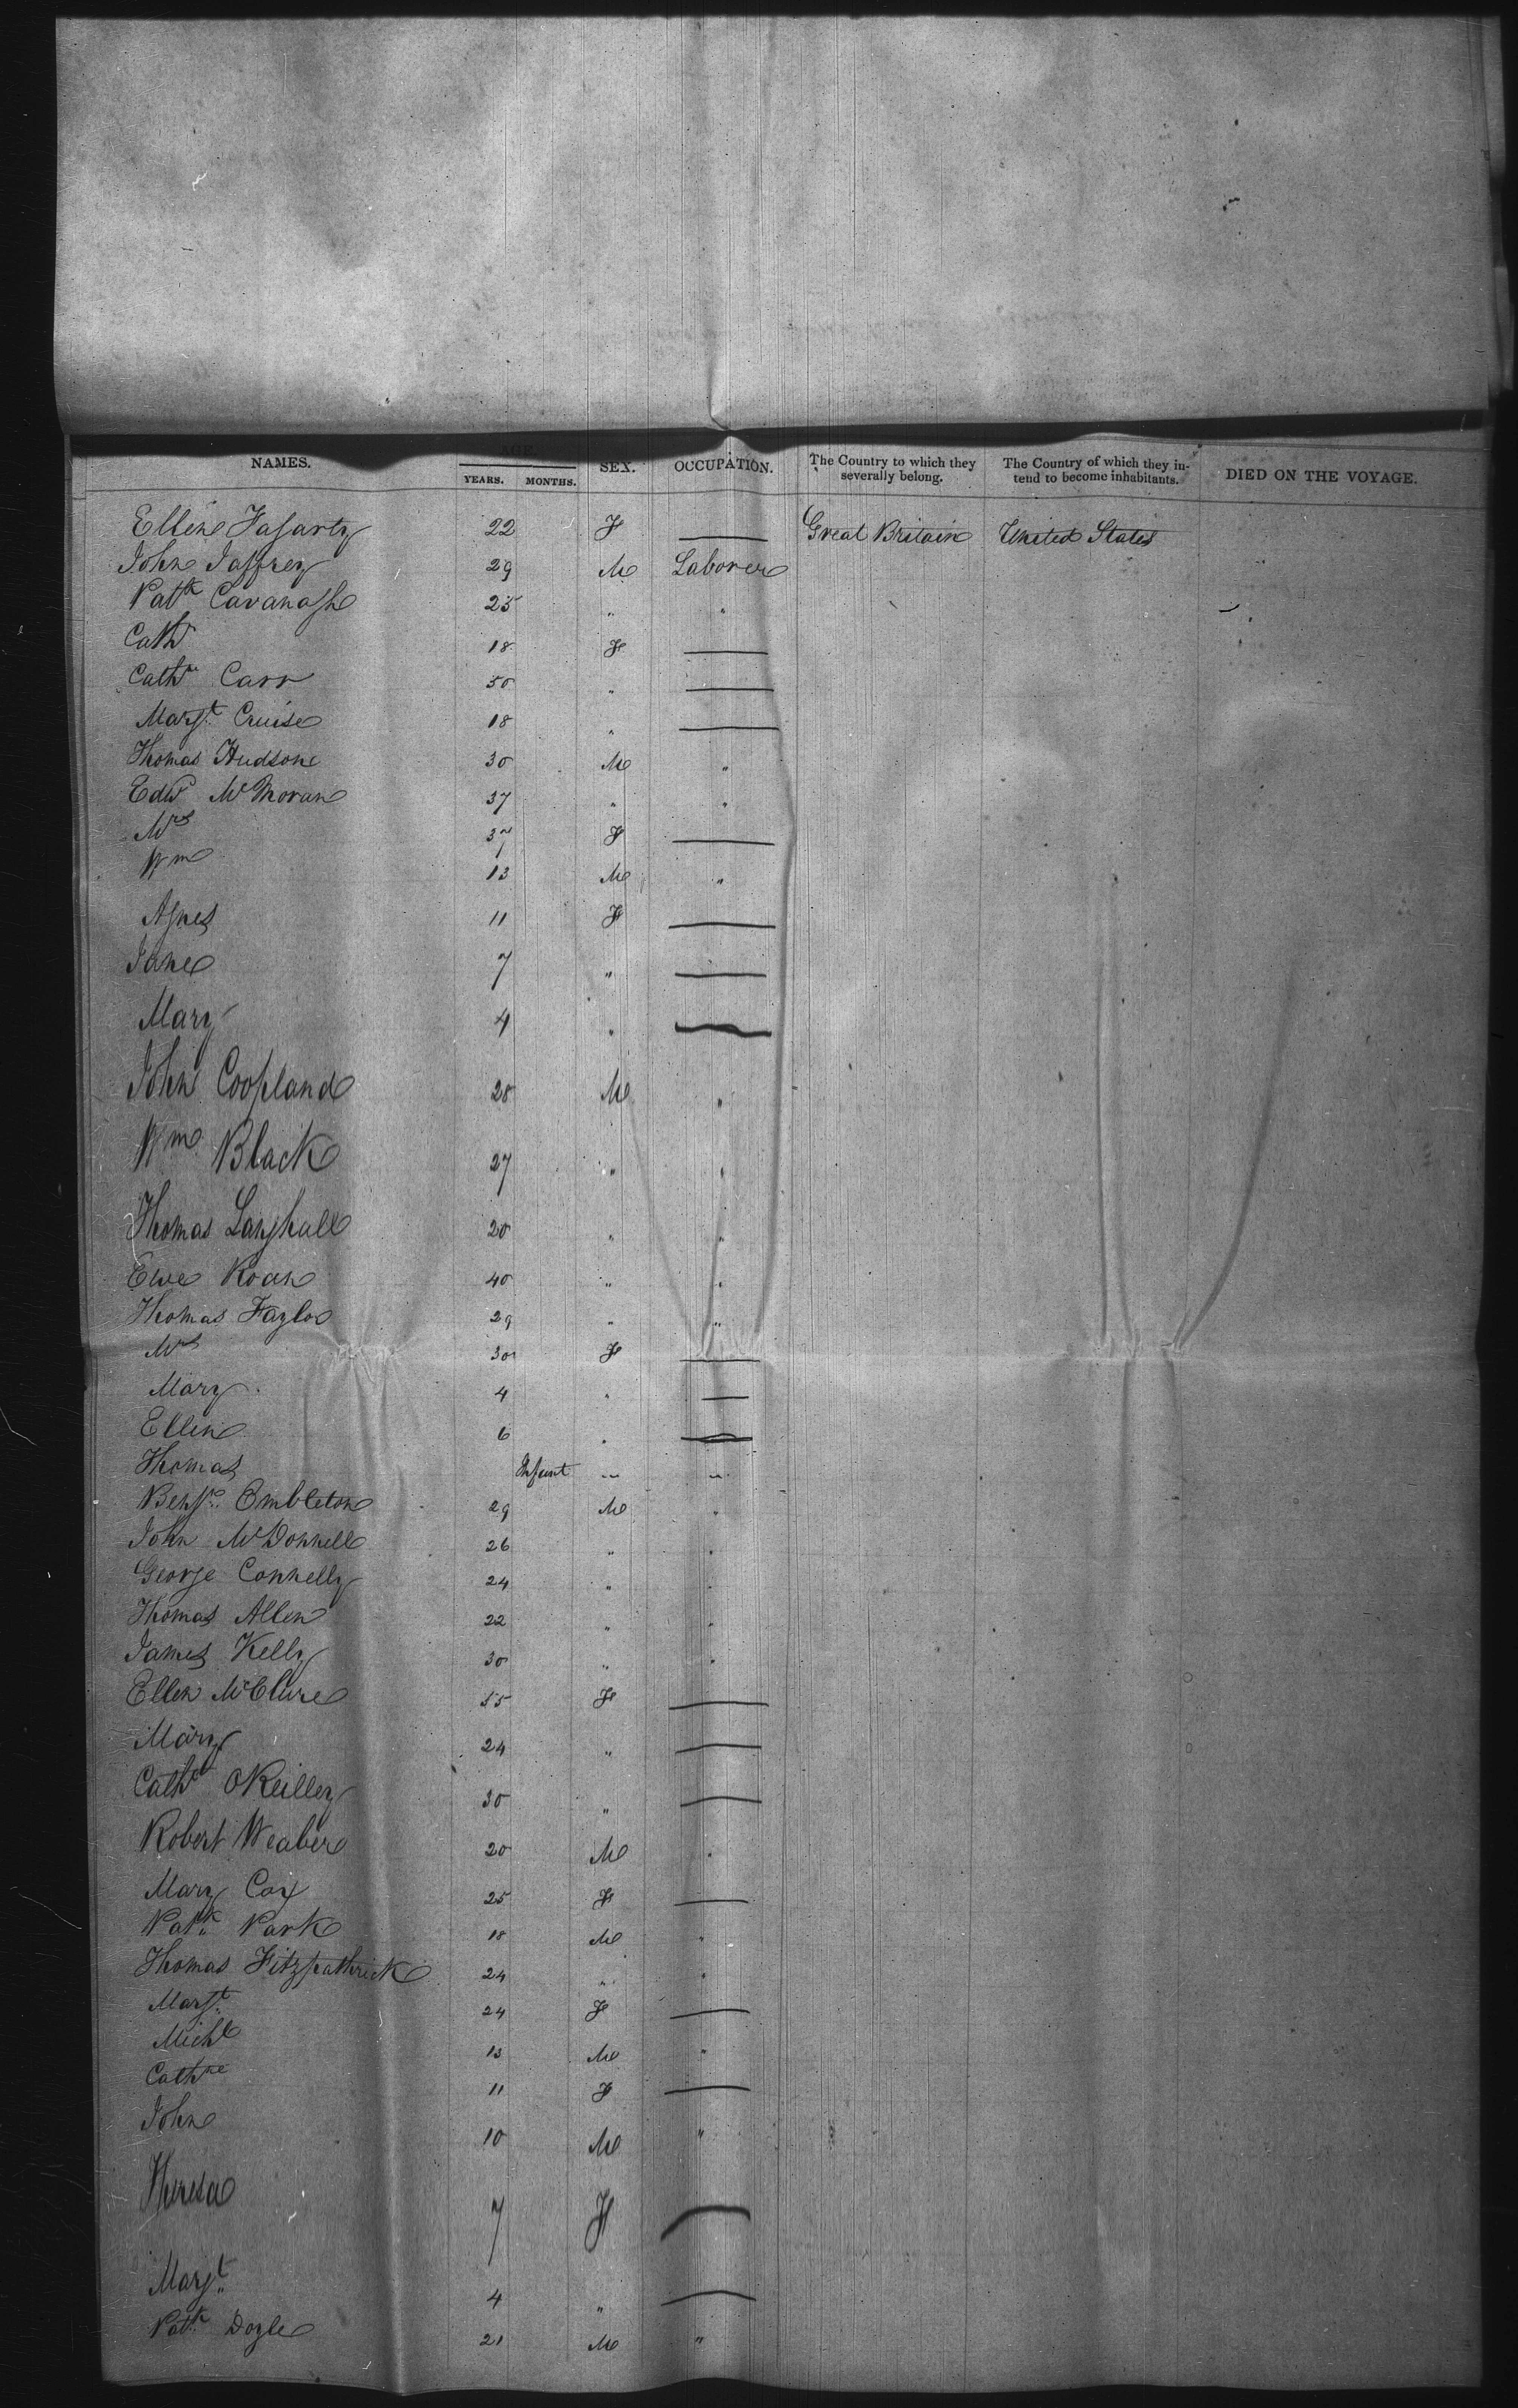 NAMES. AGE. SEX. OCCUPATION. The Country to which they severally belong. The Country of which they in- tend to become inhabitants. DIED ON THE VOYAGE.
YEARS. MONTHS.
Ellen Fagarty 22 F — Great Britain United States
John Jaffrey 29 M Laborer
Patk Cavanagh 25 " "
Cath 18 F —
Cathe Carr 50 " —
Margt Cruise 18 " —
Thomas Hudson 30 M "
Edwd McMoran 37 " "
Mrs 37 F —
Wm 13 M "
Agnes 11 F —
Jane 7 " —
Mary 4 " —
John Coopland 28 M "
Wm Black 27 " "
Thomas Langhall 20 " "
Roan 40 " "
Thomas Taylor 29 " "
Mrs 30 F —
Mary 4 " —
Ellen 6 " —
Thomas Infant " "
Benjn Embleton 29 M "
John McDonnell 26 " "
George Connelly 24 " "
Thomas Allen 22 " "
James Kelly 30 " "
Ellen McClure 55 F —
Mary 24 " —
Cathe OReilley 30 " —
Robert Weaber 20 M "
Mary Coy 25 F —
Patk Park 18 M "
Thomas Fitzpathrick 24 " "
Margt 24 F —
Michl 13 M "
Cathne 11 F —
John 10 M "
Theresa 7 F —
Margt 4 " —
Patk Doyle 21 M "